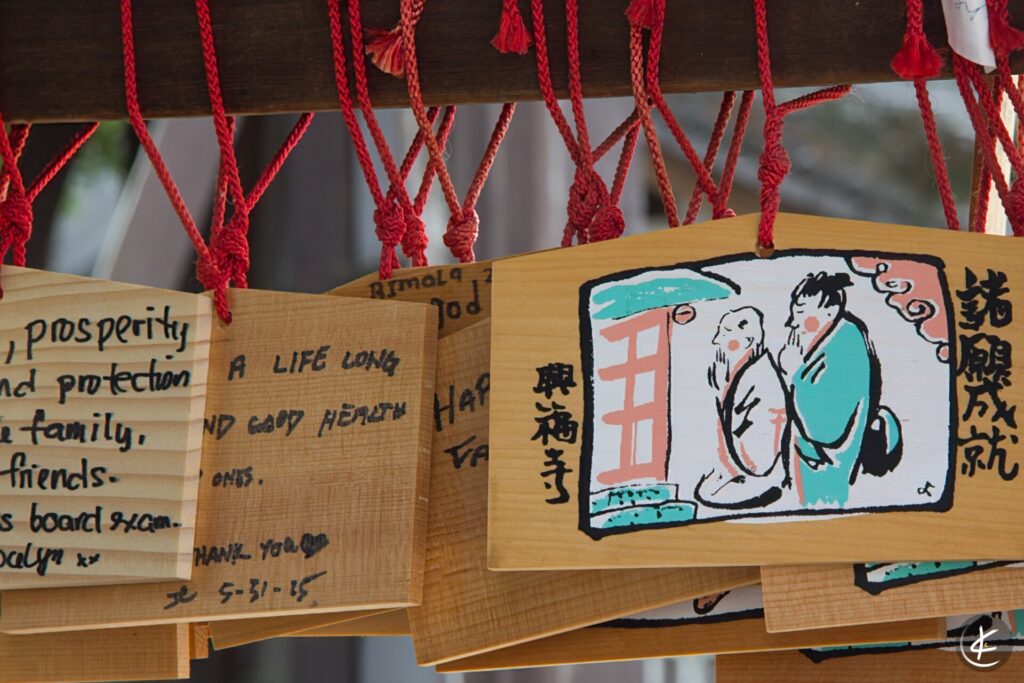 , prosperity
nd protection
family,
friends.
s board exam.
ocelyn xx
A LIFE LONG
ND GOOD HEALTH
ONES.
HANK YOU
5-31-15
RIMOLA
God
HAP
諸願成就
興福寺